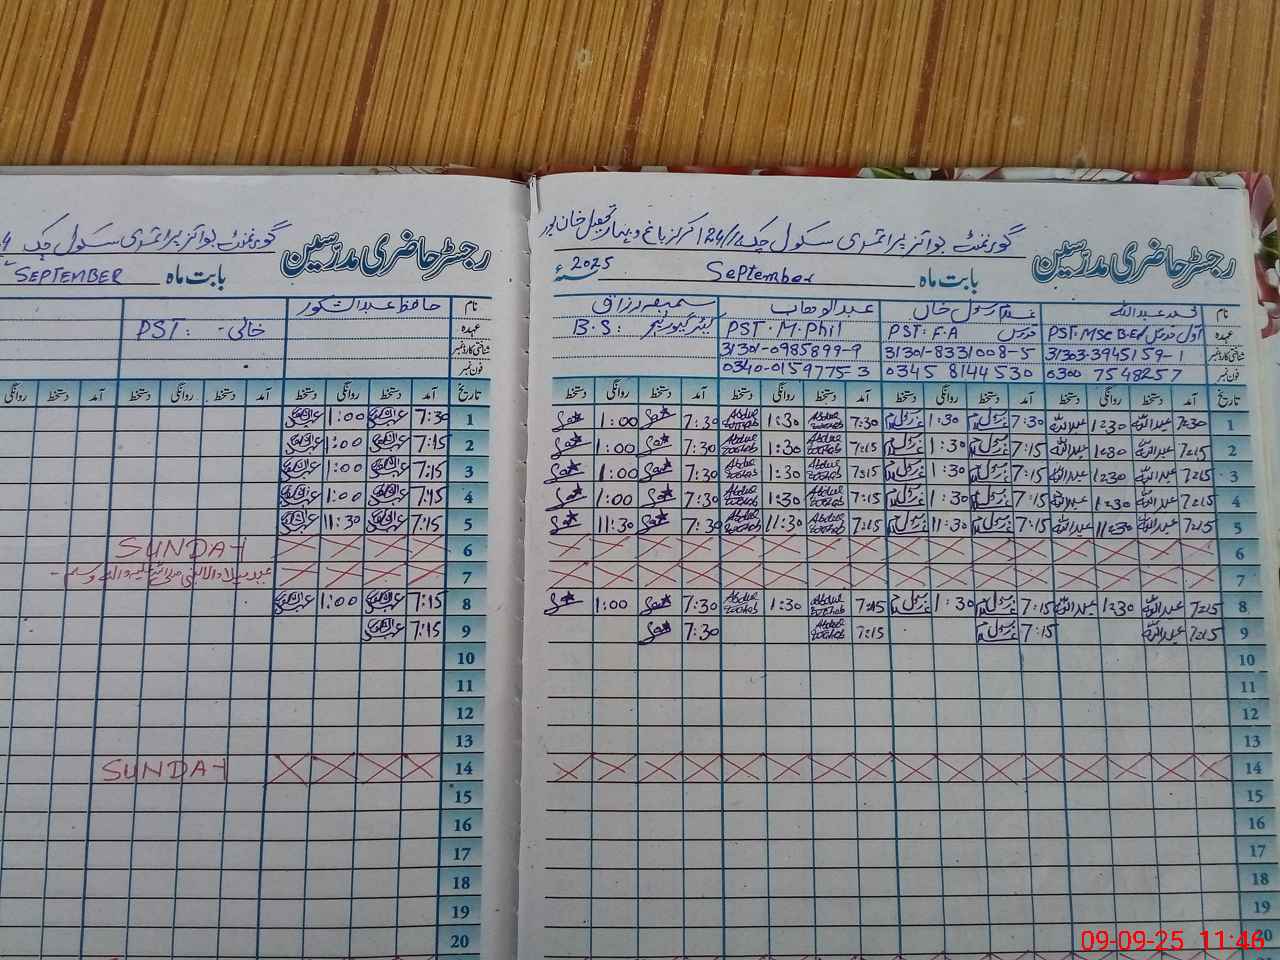 رجسٹر حاضری مدرسین
گورنمنٹ بوائز پرائمری سکول چک
بابت ماہ SEPTEMBER
نام حافظ عبدالشکور
عہدہ PST: خالی
شناختی کارڈ نمبر
فون نمبر
تاریخ آمد دستخط روانگی دستخط آمد دستخط روانگی دستخط آمد دستخط روانگی
1 7:30 1:00
2 7:15 1:00
3 7:15 1:00
4 7:15 1:00
5 7:15 11:30
6 SUNDAY
7
8 7:15 1:00
9 7:15
10
11
12
13
14 SUNDAY
15
16
17
18
19
20
رجسٹر حاضری مدرسین
گورنمنٹ بوائز پرائمری سکول چک 124// مرکز باغ و بہار تحصیل خان پور
بابت ماہ September 2025ء
نام محمد عبداللہ غلام رسول خان عبدالوہاب سمیعہ رزاق
عہدہ اول مدرس PST: MSc B.Ed مدرس PST: F.A PST. M. Phil کیئر گیور ٹیچر B.S:
شناختی کارڈ نمبر 31303-3945159-1 31301-8331008-5 31301-0985899-9
فون نمبر 0300 7548257 0345 8144530 0340-0159775-3
تاریخ آمد دستخط روانگی دستخط آمد دستخط روانگی دستخط آمد دستخط روانگی دستخط آمد دستخط روانگی دستخط
1 7:30 عبداللہ 1:30 عبداللہ 7:30 غلام رسول 1:30 غلام رسول 7:30 Abdul Wahab 1:30 Abdul Wahab 7:30 1:00
2 7:15 عبداللہ 1:30 عبداللہ 7:15 غلام رسول 1:30 غلام رسول 7:15 Abdul Wahab 1:30 Abdul Wahab 7:30 1:00
3 7:15 عبداللہ 1:30 عبداللہ 7:15 غلام رسول 1:30 غلام رسول 7:15 Abdul Wahab 1:30 Abdul Wahab 7:30 1:00
4 7:15 عبداللہ 1:30 عبداللہ 7:15 غلام رسول 1:30 غلام رسول 7:15 Abdul Wahab 1:30 Abdul Wahab 7:30 1:00
5 7:15 عبداللہ 11:30 عبداللہ 7:15 غلام رسول 11:30 غلام رسول 7:15 Abdul Wahab 11:30 Abdul Wahab 7:30 11:30
6
7
8 7:15 عبداللہ 1:30 عبداللہ 7:15 غلام رسول 1:30 غلام رسول 7:15 Abdul Wahab 1:30 Abdul Wahab 7:30 1:00
9 7:15 عبداللہ 7:15 غلام رسول 7:15 Abdul Wahab 7:30
10
11
12
13
14
15
16
17
18
19
20
09-09-25 11:46